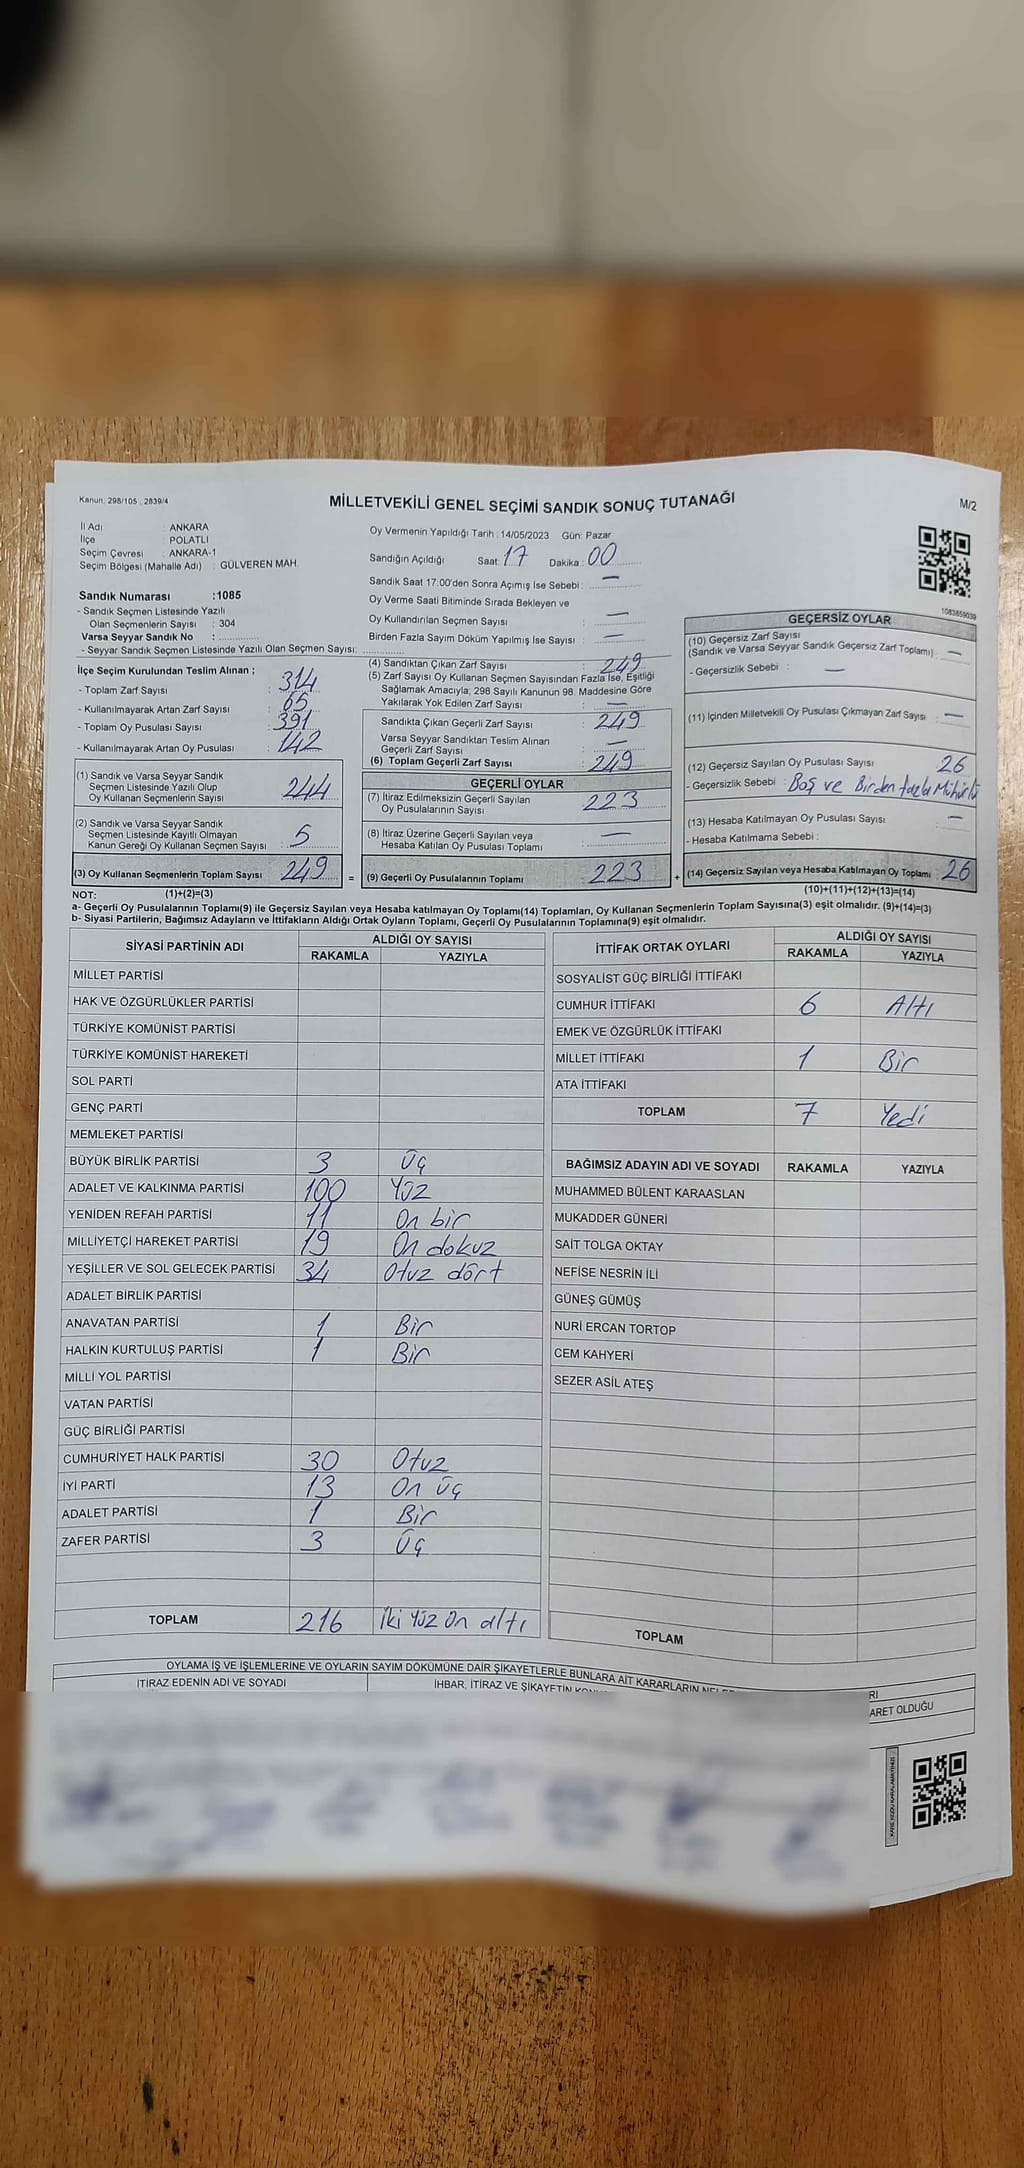 Kanun: 298/105 , 2839/4
MİLLETVEKİLİ GENEL SEÇİMİ SANDIK SONUÇ TUTANAĞI
M/2
İl Adı : ANKARA
İlçe : POLATLI
Seçim Çevresi : ANKARA-1
Seçim Bölgesi (Mahalle Adı) : GÜLVEREN MAH.
Oy Vermenin Yapıldığı Tarih : 14/05/2023 Gün: Pazar
Sandığın Açıldığı Saat: 17 Dakika : 00
Sandık Saat 17.00'den Sonra Açımış İse Sebebi : —
Oy Verme Saati Bitiminde Sırada Bekleyen ve
Oy Kullandırılan Seçmen Sayısı : —
Birden Fazla Sayım Döküm Yapılmış İse Sayısı : —
1083859039
Sandık Numarası :1085
- Sandık Seçmen Listesinde Yazılı
Olan Seçmenlerin Sayısı : 304
Varsa Seyyar Sandık No :
- Seyyar Sandık Seçmen Listesinde Yazılı Olan Seçmen Sayısı:
İlçe Seçim Kurulundan Teslim Alınan ;
- Toplam Zarf Sayısı : 314
- Kullanılmayarak Artan Zarf Sayısı : 65
- Toplam Oy Pusulası Sayısı : 391
- Kullanılmayarak Artan Oy Pusulası : 142
(1) Sandık ve Varsa Seyyar Sandık
Seçmen Listesinde Yazılı Olup
Oy Kullanan Seçmenlerin Sayısı : 244
(2) Sandık ve Varsa Seyyar Sandık
Seçmen Listesinde Kayıtlı Olmayan
Kanun Gereği Oy Kullanan Seçmen Sayısı : 5
(3) Oy Kullanan Seçmenlerin Toplam Sayısı : 249 =
(4) Sandıktan Çıkan Zarf Sayısı : 249
(5) Zarf Sayısı Oy Kullanan Seçmen Sayısından Fazla İse, Eşitliği
Sağlamak Amacıyla; 298 Sayılı Kanunun 98. Maddesine Göre
Yakılarak Yok Edilen Zarf Sayısı : —
Sandıkta Çıkan Geçerli Zarf Sayısı : 249
Varsa Seyyar Sandıktan Teslim Alınan
Geçerli Zarf Sayısı : —
(6) Toplam Geçerli Zarf Sayısı : 249
GEÇERLİ OYLAR
(7) İtiraz Edilmeksizin Geçerli Sayılan
Oy Pusulalarının Sayısı : 223
(8) İtiraz Üzerine Geçerli Sayılan veya
Hesaba Katılan Oy Pusulası Toplamı : —
(9) Geçerli Oy Pusulalarının Toplamı : 223 +
GEÇERSİZ OYLAR
(10) Geçersiz Zarf Sayısı
(Sandık ve Varsa Seyyar Sandık Geçersiz Zarf Toplamı) : —
- Geçersizlik Sebebi : —
(11) İçinden Milletvekili Oy Pusulası Çıkmayan Zarf Sayısı : —
(12) Geçersiz Sayılan Oy Pusulası Sayısı : 26
- Geçersizlik Sebebi : Boş ve Birden fazla Mühürlü
(13) Hesaba Katılmayan Oy Pusulası Sayısı : —
- Hesaba Katılmama Sebebi :
(14) Geçersiz Sayılan veya Hesaba Katılmayan Oy Toplamı : 26
NOT: (1)+(2)=(3)
(10)+(11)+(12)+(13)=(14)
a- Geçerli Oy Pusulalarının Toplamı(9) ile Geçersiz Sayılan veya Hesaba katılmayan Oy Toplamı(14) Toplamları, Oy Kullanan Seçmenlerin Toplam Sayısına(3) eşit olmalıdır. (9)+(14)=(3)
b- Siyasi Partilerin, Bağımsız Adayların ve İttifakların Aldığı Ortak Oyların Toplamı, Geçerli Oy Pusulalarının Toplamına(9) eşit olmalıdır.
SİYASİ PARTİNİN ADI ALDIĞI OY SAYISI
RAKAMLA YAZIYLA
MİLLET PARTİSİ
HAK VE ÖZGÜRLÜKLER PARTİSİ
TÜRKİYE KOMÜNİST PARTİSİ
TÜRKİYE KOMÜNİST HAREKETİ
SOL PARTİ
GENÇ PARTİ
MEMLEKET PARTİSİ
BÜYÜK BİRLİK PARTİSİ 3 Üç
ADALET VE KALKINMA PARTİSİ 100 Yüz
YENİDEN REFAH PARTİSİ 11 On bir
MİLLİYETÇİ HAREKET PARTİSİ 19 On dokuz
YEŞİLLER VE SOL GELECEK PARTİSİ 34 Otuz dört
ADALET BİRLİK PARTİSİ
ANAVATAN PARTİSİ 1 Bir
HALKIN KURTULUŞ PARTİSİ 1 Bir
MİLLİ YOL PARTİSİ
VATAN PARTİSİ
GÜÇ BİRLİĞİ PARTİSİ
CUMHURİYET HALK PARTİSİ 30 Otuz
İYİ PARTİ 13 On üç
ADALET PARTİSİ 1 Bir
ZAFER PARTİSİ 3 Üç
TOPLAM 216 İki Yüz On altı
İTTİFAK ORTAK OYLARI ALDIĞI OY SAYISI
RAKAMLA YAZIYLA
SOSYALİST GÜÇ BİRLİĞİ İTTİFAKI
CUMHUR İTTİFAKI 6 Altı
EMEK VE ÖZGÜRLÜK İTTİFAKI
MİLLET İTTİFAKI 1 Bir
ATA İTTİFAKI
TOPLAM 7 Yedi
BAĞIMSIZ ADAYIN ADI VE SOYADI RAKAMLA YAZIYLA
MUHAMMED BÜLENT KARAASLAN
MUKADDER GÜNERİ
SAİT TOLGA OKTAY
NEFİSE NESRİN İLİ
GÜNEŞ GÜMÜŞ
NURİ ERCAN TORTOP
CEM KAHYERİ
SEZER ASİL ATEŞ
TOPLAM
OYLAMA İŞ VE İŞLEMLERİNE VE OYLARIN SAYIM DÖKÜMÜNE DAİR ŞİKAYETLERLE BUNLARA AİT KARARLARIN
İTİRAZ EDENİN ADI VE SOYADI İHBAR, İTİRAZ VE ŞİKAYETİN
OLDUĞU